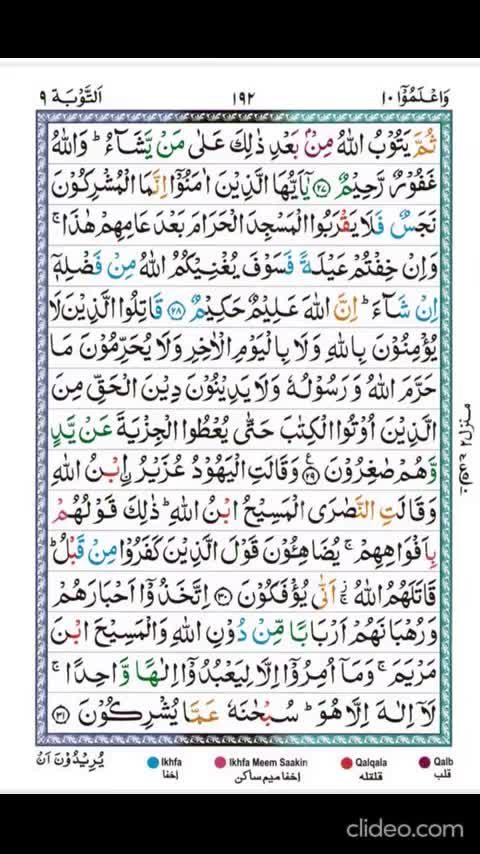 وَاعْلَمُوْٓا ١٠
١٩٢
اَلتَّوْبَة ٩
ثُمَّ يَتُوْبُ اللّٰهُ مِنْۢ بَعْدِ ذٰلِكَ عَلٰى مَنْ يَّشَآءُ ؕ وَاللّٰهُ
غَفُوْرٌ رَّحِيْمٌ ﴿۲۷﴾ يٰۤاَيُّهَا الَّذِيْنَ اٰمَنُوْۤا اِنَّمَا الْمُشْرِكُوْنَ
نَجَسٌ فَلَا يَقْرَبُوا الْمَسْجِدَ الْحَرَامَ بَعْدَ عَامِهِمْ هٰذَا ۚ
وَاِنْ خِفْتُمْ عَيْلَةً فَسَوْفَ يُغْنِيْكُمُ اللّٰهُ مِنْ فَضْلِهٖۤ
اِنْ شَآءَ ؕ اِنَّ اللّٰهَ عَلِيْمٌ حَكِيْمٌ ﴿۲۸﴾ قَاتِلُوا الَّذِيْنَ لَا
يُؤْمِنُوْنَ بِاللّٰهِ وَلَا بِالْيَوْمِ الْاٰخِرِ وَلَا يُحَرِّمُوْنَ مَا
حَرَّمَ اللّٰهُ وَرَسُوْلُهٗ وَلَا يَدِيْنُوْنَ دِيْنَ الْحَقِّ مِنَ
الَّذِيْنَ اُوْتُوا الْكِتٰبَ حَتّٰى يُعْطُوا الْجِزْيَةَ عَنْ يَّدٍ
وَّهُمْ صٰغِرُوْنَ ﴿۲۹﴾ وَقَالَتِ الْيَهُوْدُ عُزَيْرُ ۨابْنُ اللّٰهِ
وَقَالَتِ النَّصٰرَى الْمَسِيْحُ ابْنُ اللّٰهِ ؕ ذٰلِكَ قَوْلُهُمْ
بِاَفْوَاهِهِمْ ۚ يُضَاهِـُٔوْنَ قَوْلَ الَّذِيْنَ كَفَرُوْا مِنْ قَبْلُ ؕ
قَاتَلَهُمُ اللّٰهُ ۚ اَنّٰى يُؤْفَكُوْنَ ﴿۳۰﴾ اِتَّخَذُوْۤا اَحْبَارَهُمْ
وَرُهْبَانَهُمْ اَرْبَابًا مِّنْ دُوْنِ اللّٰهِ وَالْمَسِيْحَ ابْنَ
مَرْيَمَ ۚ وَمَاۤ اُمِرُوْۤا اِلَّا لِيَعْبُدُوْۤا اِلٰهًا وَّاحِدًا ۚ
لَاۤ اِلٰهَ اِلَّا هُوَ ؕ سُبْحٰنَهٗ عَمَّا يُشْرِكُوْنَ ﴿۳۱﴾
يُرِيْدُوْنَ اَنْ
Ikhfa
اخفا
Ikhfa Meem Saakin
اخفا میم ساکن
Qalqala
قلقله
Qalb
قلب
clideo.com